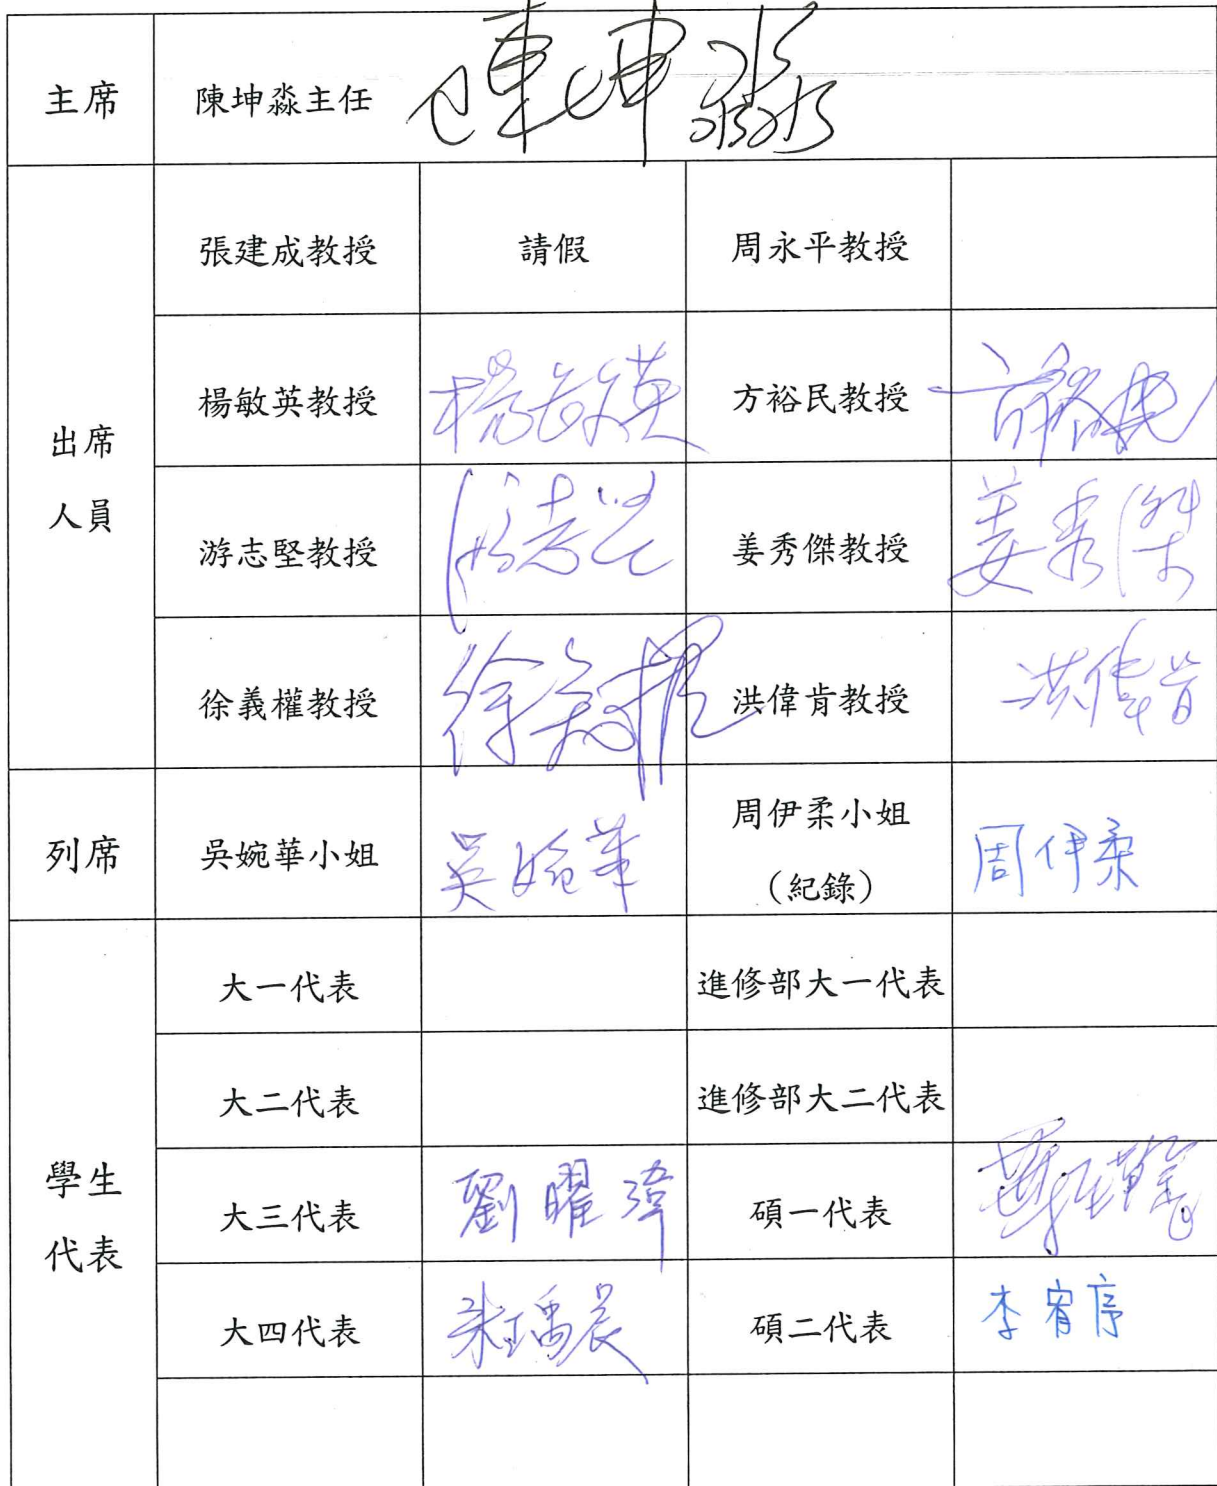 主席
陳坤淼主任
陳坤淼
出席
人員
張建成教授
請假
周永平教授
楊敏英教授
楊敏英
方裕民教授
方裕民
游志堅教授
游志堅
姜秀傑教授
姜秀傑
徐義權教授
徐義權
洪偉肯教授
洪偉肯
列席
吳婉華小姐
吳婉華
周伊柔小姐
(紀錄)
周伊柔
學生
代表
大一代表
進修部大一代表
大二代表
進修部大二代表
大三代表
劉曜
碩一代表
大四代表
碩二代表
李宥序